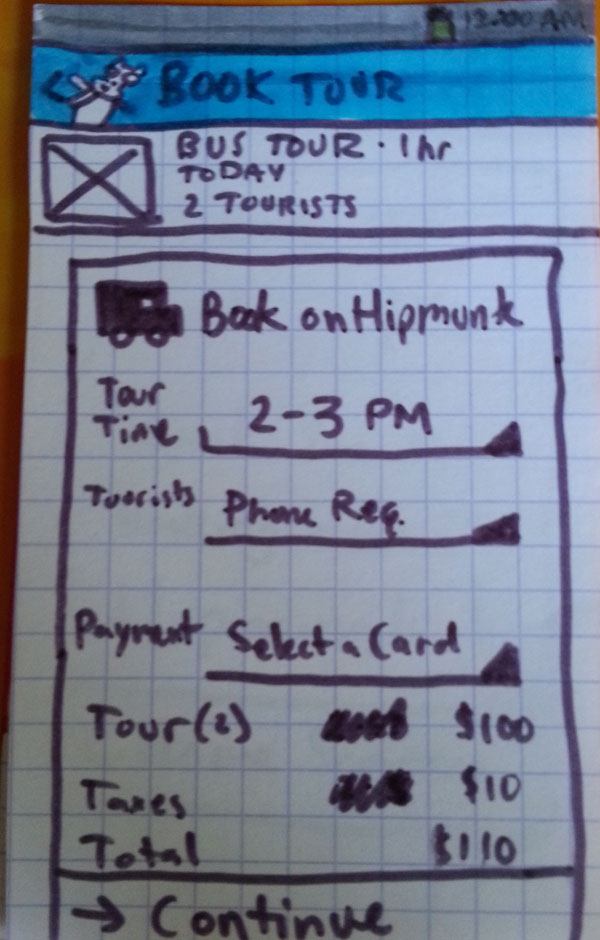 12:00 AM
BOOK TOUR
BUS TOUR · 1hr
TODAY
2 TOURISTS
Book on Hipmunk
Tour
Time
2-3 PM
Tourists Phone Req.
Payment Select a Card
Tour (2) $100
Taxes $10
Total $110
→ Continue